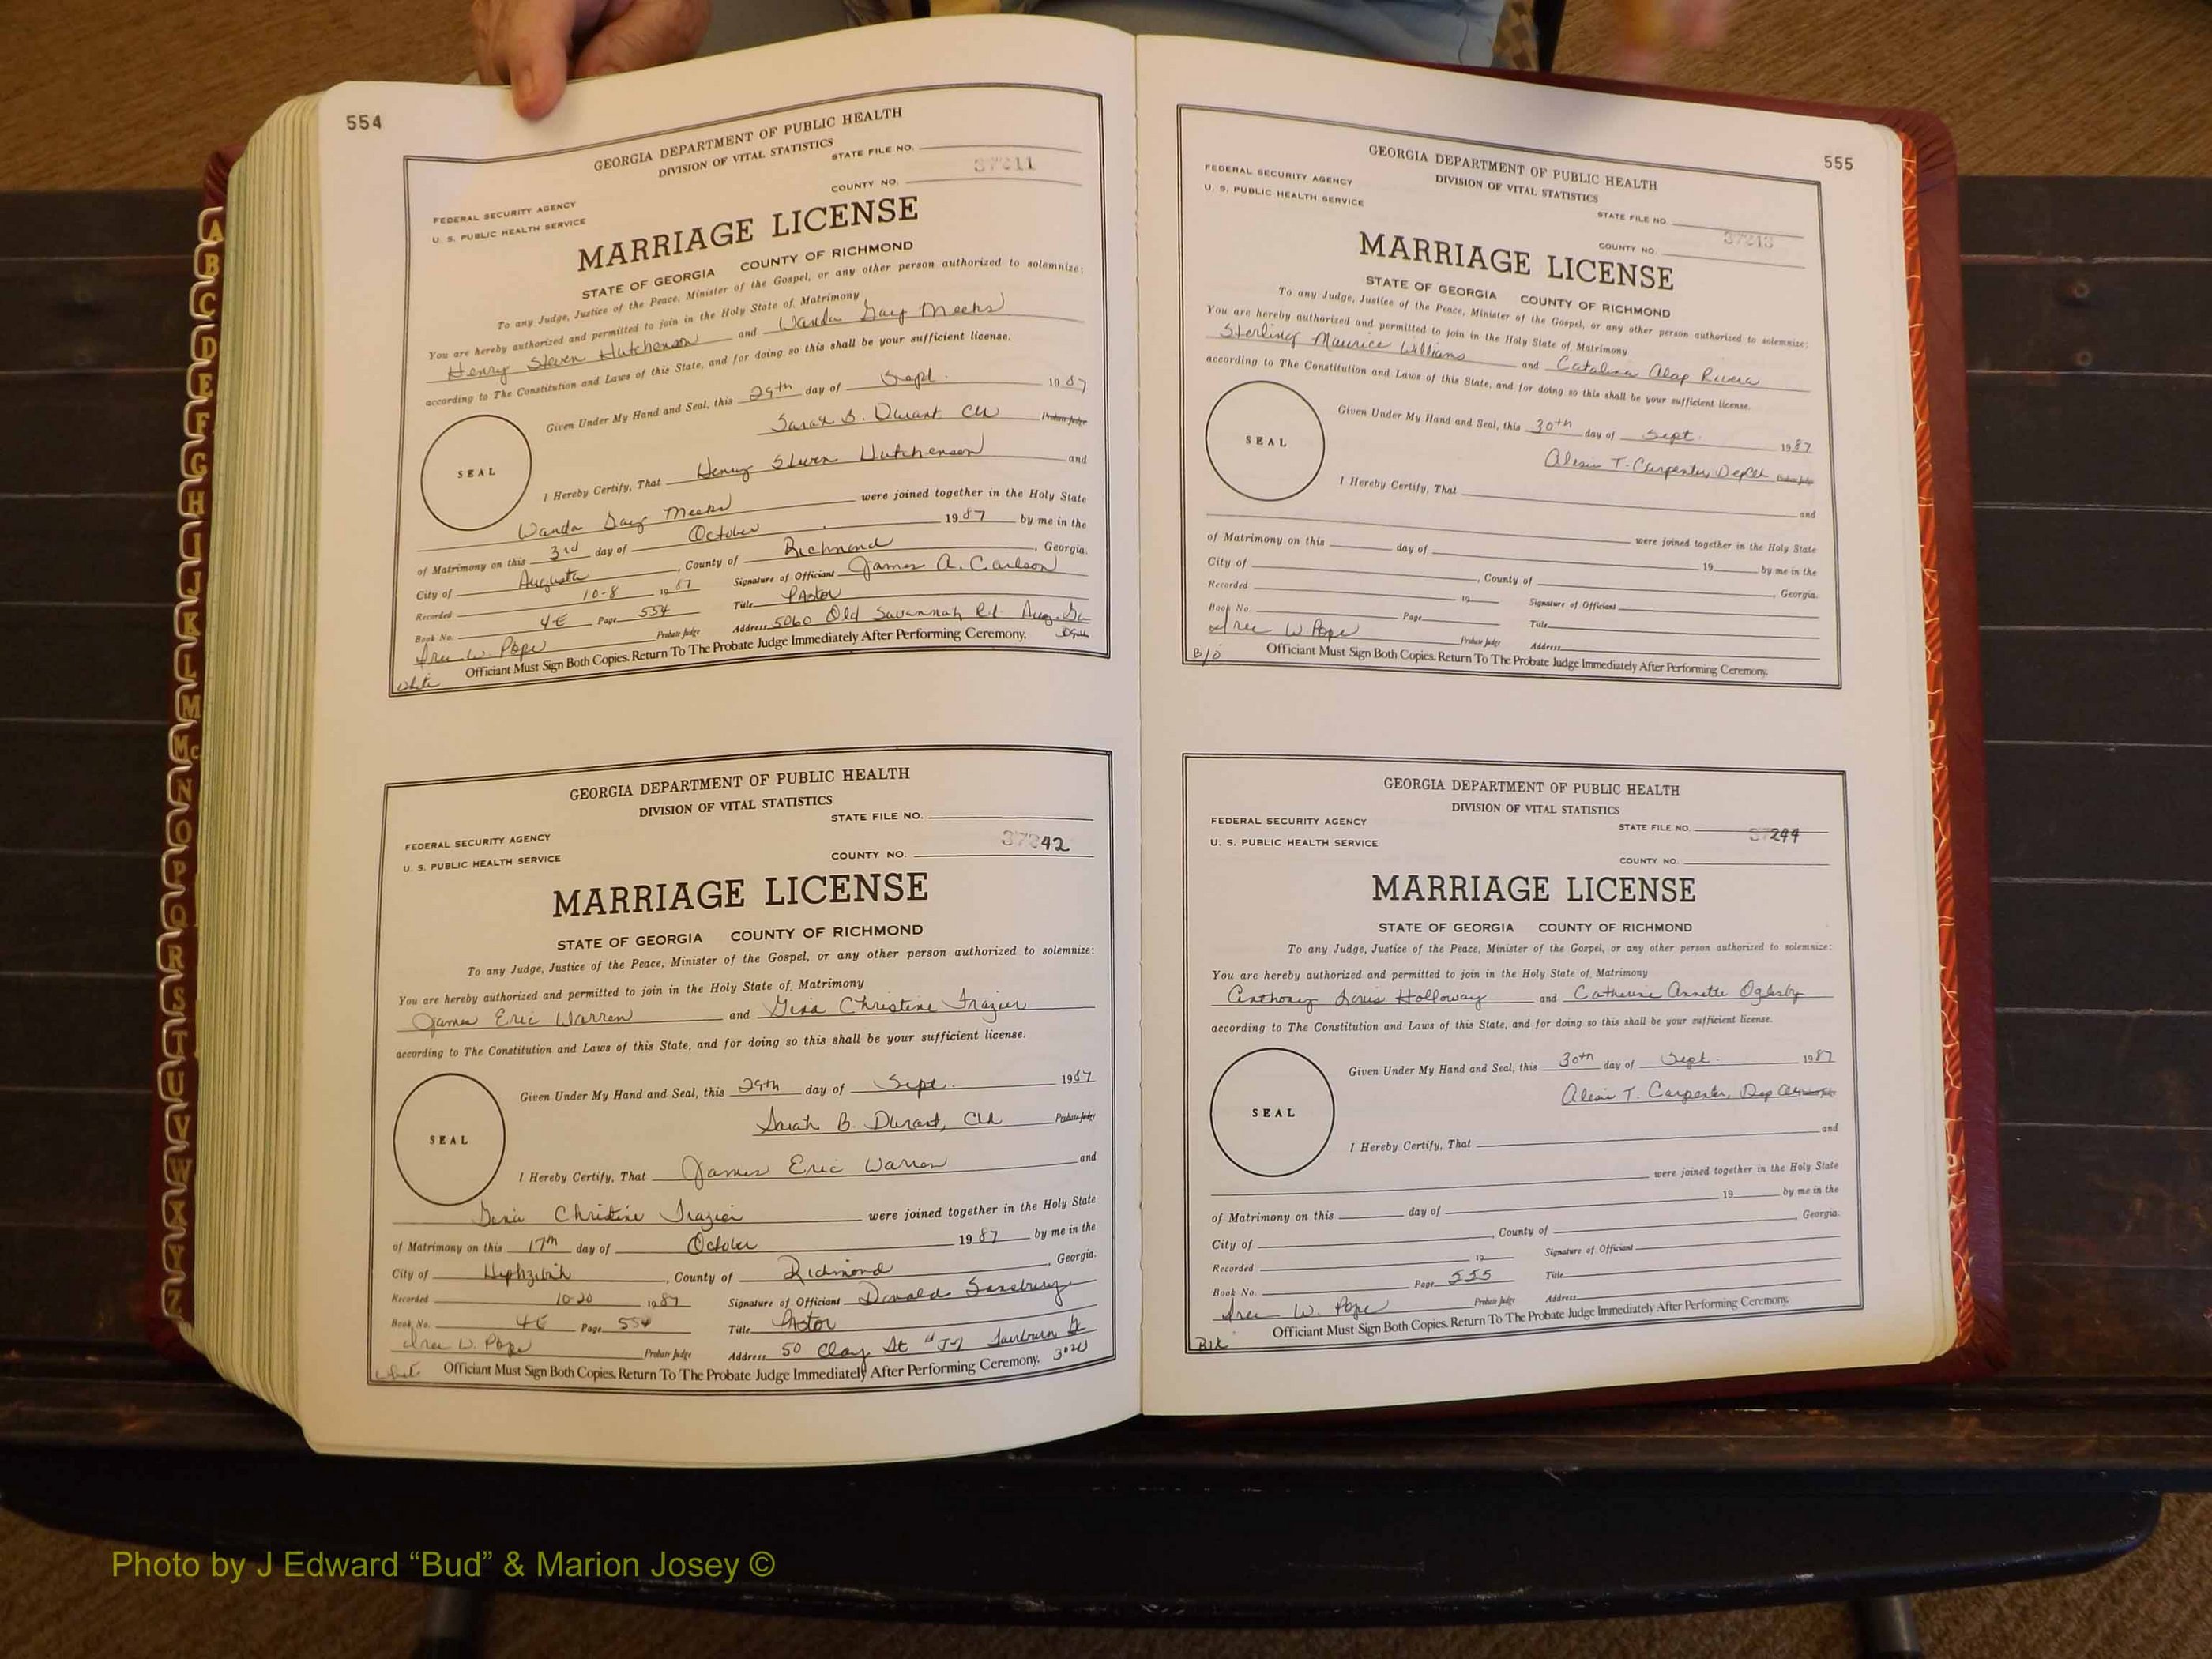 554
GEORGIA DEPARTMENT OF PUBLIC HEALTH
DIVISION OF VITAL STATISTICS
STATE FILE NO.
COUNTY NO.
FEDERAL SECURITY AGENCY
U. S. PUBLIC HEALTH SERVICE
MARRIAGE LICENSE
STATE OF GEORGIA COUNTY OF RICHMOND
To any Judge, Justice of the Peace, Minister of the Gospel, or any other person authorized to solemnize:
You are hereby authorized and permitted to join in the Holy State of Matrimony
Henry Steven Hutchenson and Wanda Gay Meeks
according to The Constitution and Laws of this State, and for doing so this shall be your sufficient license.
Given Under My Hand and Seal, this 29th day of Sept. 1987
Sarah B. Durant Clk Probate Judge
SEAL
I Hereby Certify, That Henry Steven Hutchenson and
Wanda Gay Meeks were joined together in the Holy State
of Matrimony on this 3rd day of October 1987 by me in the
City of Augusta, County of Richmond, Georgia.
Recorded 10-8 1987 Signature of Officiant James A. Carlson
Book No. 4E Page 554 Title Pastor
Probate Judge Address 5060 Old Savannah Rd. Aug. Ga
W. Pope
Officiant Must Sign Both Copies. Return To The Probate Judge Immediately After Performing Ceremony.
White
GEORGIA DEPARTMENT OF PUBLIC HEALTH
DIVISION OF VITAL STATISTICS
STATE FILE NO.
37242
COUNTY NO.
FEDERAL SECURITY AGENCY
U. S. PUBLIC HEALTH SERVICE
MARRIAGE LICENSE
STATE OF GEORGIA COUNTY OF RICHMOND
To any Judge, Justice of the Peace, Minister of the Gospel, or any other person authorized to solemnize:
You are hereby authorized and permitted to join in the Holy State of Matrimony
James Eric Warren and Gina Christine Frazier
according to The Constitution and Laws of this State, and for doing so this shall be your sufficient license.
Given Under My Hand and Seal, this 29th day of Sept. 1987
Sarah B. Durant, Clk Probate Judge
SEAL
I Hereby Certify, That James Eric Warren and
Gina Christine Frazier were joined together in the Holy State
of Matrimony on this 17th day of October 1987 by me in the
City of Hephzibah, County of Richmond, Georgia.
Recorded 10-20 1987 Signature of Officiant Donald Sansbury
Book No. 4E Page 554 Title Pastor
W. Pope Probate Judge Address 50 Clay St Fairburn Ga
Officiant Must Sign Both Copies. Return To The Probate Judge Immediately After Performing Ceremony.
555
GEORGIA DEPARTMENT OF PUBLIC HEALTH
DIVISION OF VITAL STATISTICS
FEDERAL SECURITY AGENCY
U. S. PUBLIC HEALTH SERVICE
STATE FILE NO.
37243
COUNTY NO.
MARRIAGE LICENSE
STATE OF GEORGIA COUNTY OF RICHMOND
To any Judge, Justice of the Peace, Minister of the Gospel, or any other person authorized to solemnize:
You are hereby authorized and permitted to join in the Holy State of Matrimony
Sterling Maurice Williams and Catalina Alap Rivera
according to The Constitution and Laws of this State, and for doing so this shall be your sufficient license.
Given Under My Hand and Seal, this 30th day of Sept. 1987
T. Carpenter, Dep Clk Probate Judge
SEAL
I Hereby Certify, That and
were joined together in the Holy State
of Matrimony on this day of 19 by me in the
City of , County of Georgia.
Recorded 19 Signature of Officiant
Book No. Page Title
W. Pope Probate Judge Address
Officiant Must Sign Both Copies. Return To The Probate Judge Immediately After Performing Ceremony.
GEORGIA DEPARTMENT OF PUBLIC HEALTH
DIVISION OF VITAL STATISTICS
FEDERAL SECURITY AGENCY
U. S. PUBLIC HEALTH SERVICE
STATE FILE NO. 37244
COUNTY NO.
MARRIAGE LICENSE
STATE OF GEORGIA COUNTY OF RICHMOND
To any Judge, Justice of the Peace, Minister of the Gospel, or any other person authorized to solemnize:
You are hereby authorized and permitted to join in the Holy State of Matrimony
Anthony Louis Holloway and Catherine Annette Oglesby
according to The Constitution and Laws of this State, and for doing so this shall be your sufficient license.
Given Under My Hand and Seal, this 30th day of Sept. 1987
T. Carpenter, Dep Clk Probate Judge
SEAL
I Hereby Certify, That and
were joined together in the Holy State
of Matrimony on this day of 19 by me in the
City of , County of , Georgia.
Recorded 19 Signature of Officiant
Book No. Page 555 Title
W. Pope Probate Judge Address
Officiant Must Sign Both Copies. Return To The Probate Judge Immediately After Performing Ceremony.
Blk
A
B
C
D
E
F
G
H
I
J
K
L
M
Mc
N
O
P
Q
R
S
T
U
V
W
X
Y
Z
Photo by J Edward “Bud” & Marion Josey ©